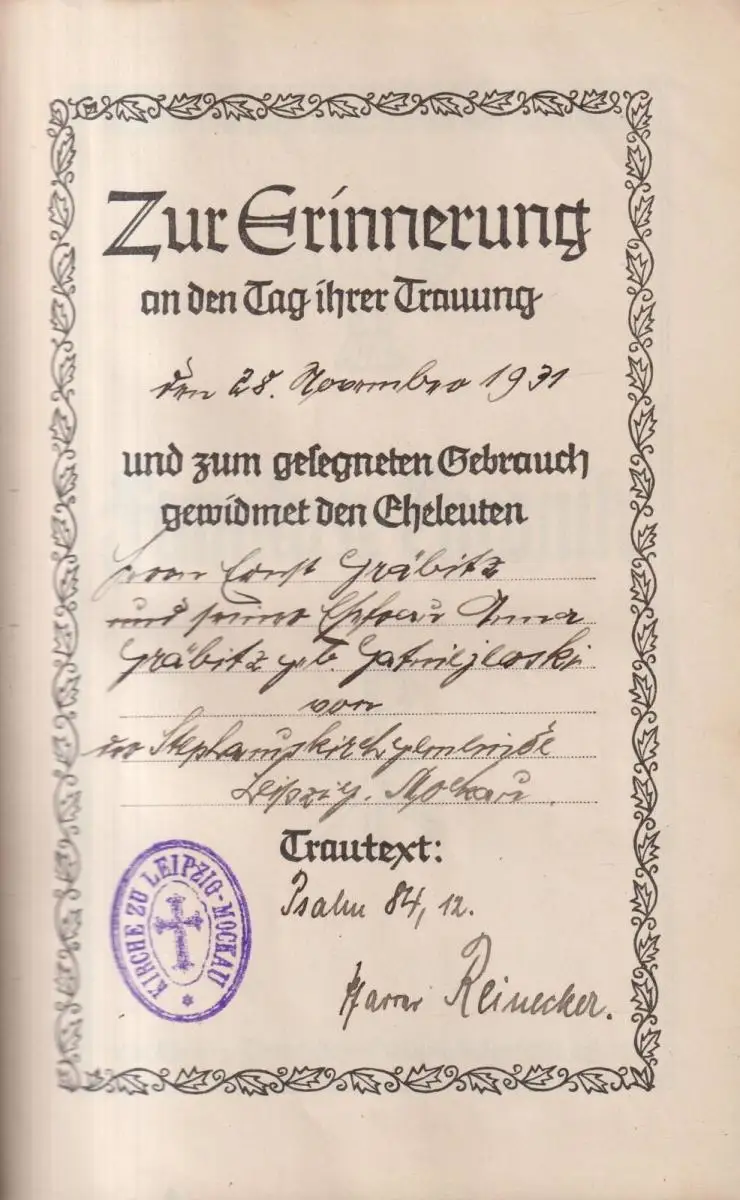 Zur Erinnerung
an den Tag ihrer Trauung
den 28. November 1931
und zum gesegneten Gebrauch
gewidmet den Eheleuten
Herrn Ernst Gräbitz
und seiner Ehefrau Anna
Gräbitz geb.
von
der Stephanuskirchgemeinde
Leipzig. Mockau.
Trautext:
Psalm 84, 12.
Pfarrer Reinecker.
KIRCHE ZU LEIPZIG-MOCKAU